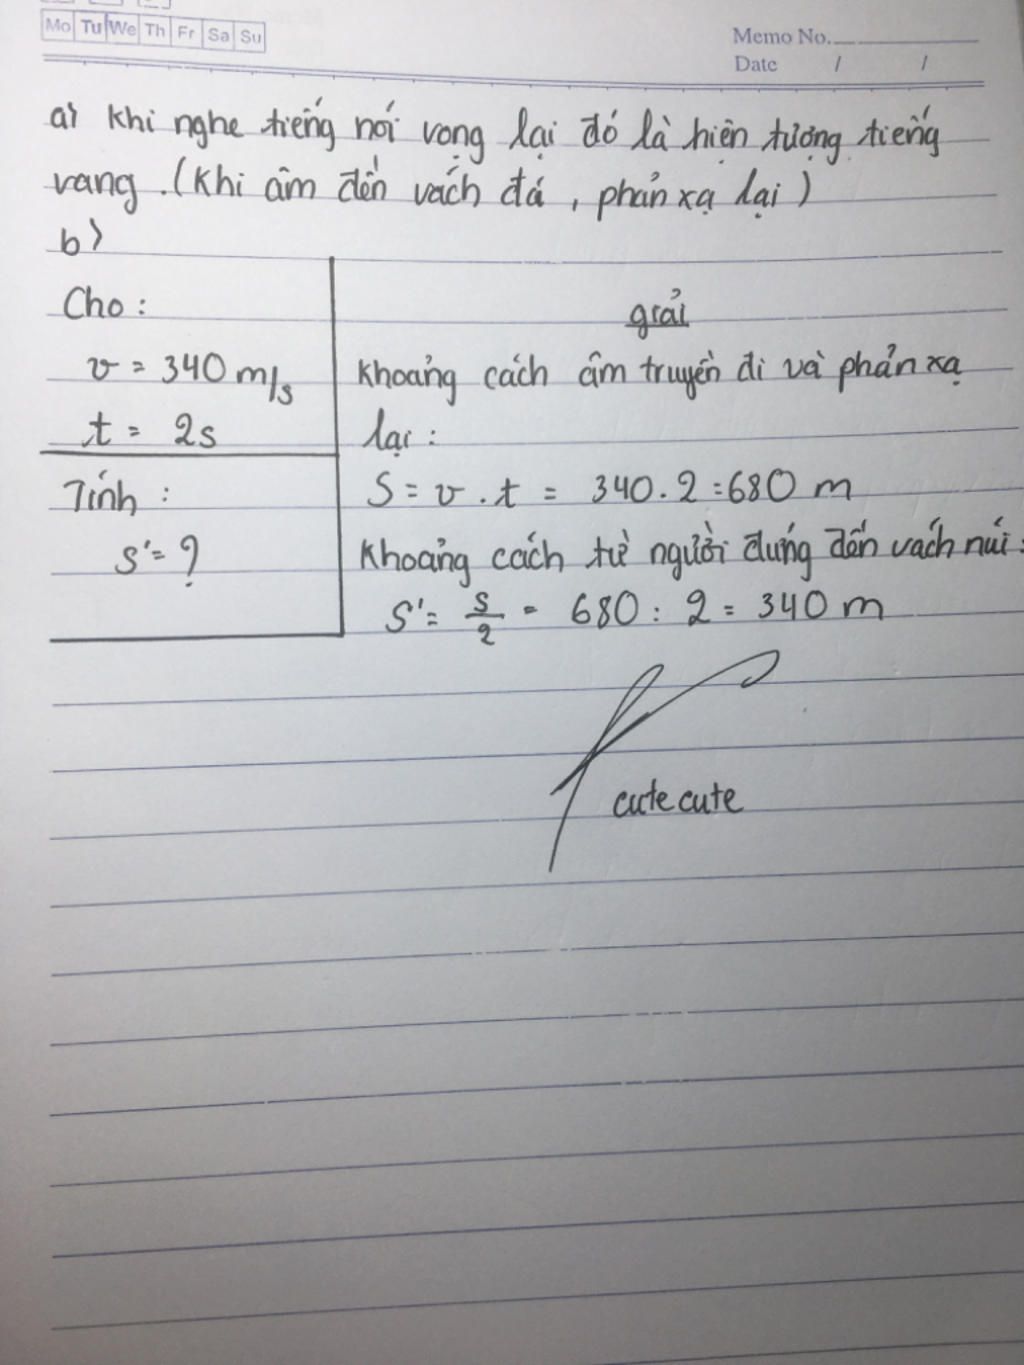 Mo Tu We Th Fr Sa Su
Memo No.
Date / /
a) Khi nghe tiếng nói vọng lại đó là hiện tượng tiếng
vang. (Khi âm đến vách đá, phản xạ lại)
b)
Cho:
v = 340 m/s
t = 2s
Tính:
s' = ?
giải
Khoảng cách âm truyền đi và phản xạ
lại:
S = v . t = 340 . 2 = 680 m
Khoảng cách từ người đứng đến vách núi:
S' = s/2 = 680 : 2 = 340 m
cute cute